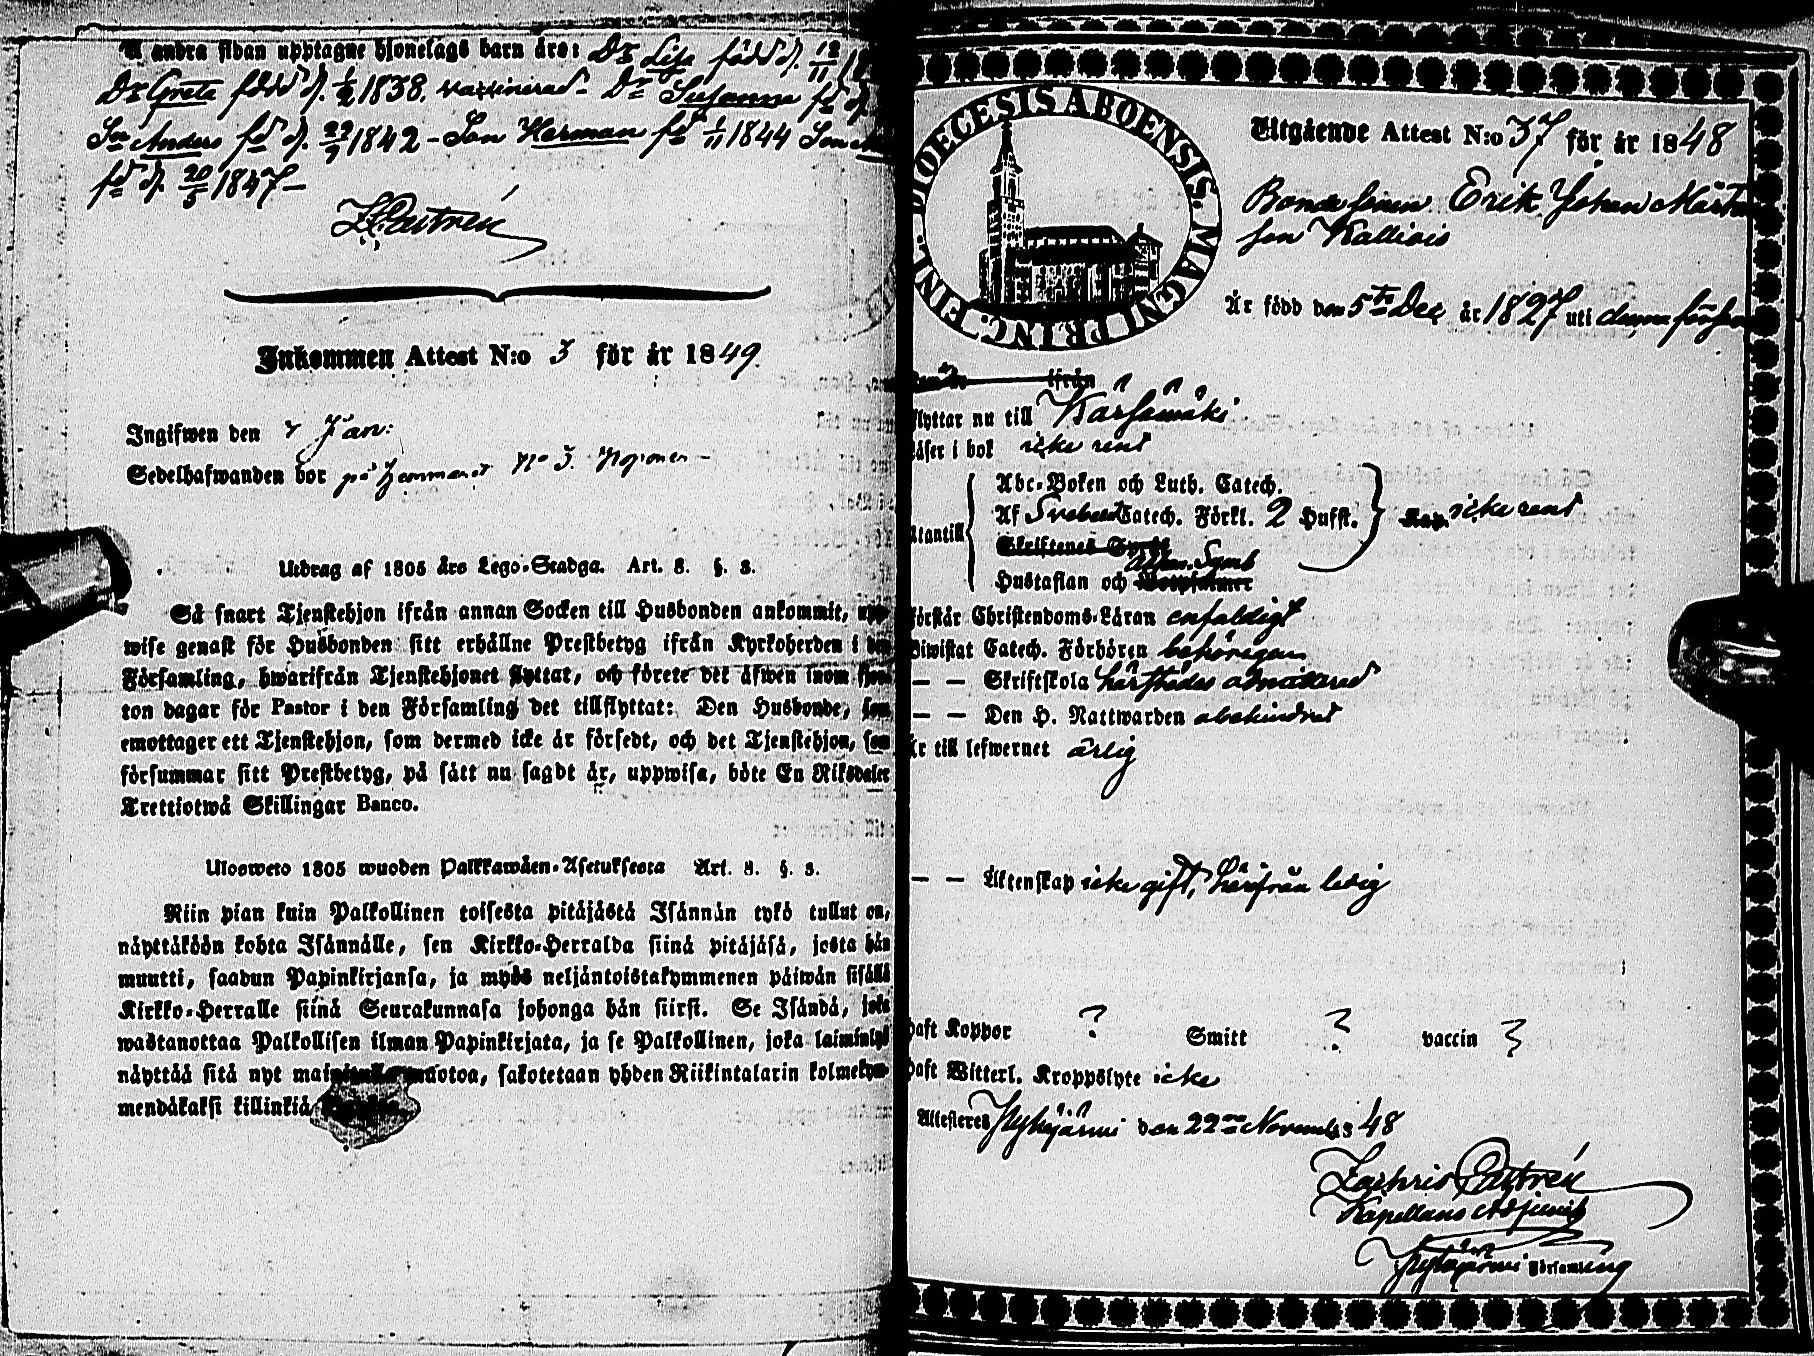 å andra sidan upptagne hjonelags barn äro: Dr Lisa född d. 12/11
Dr Greta född d. 1/2 1838. vaxinerad - Dr Susanna fd d.
Son Anders fd d. 29/9 1842 - Son Herman fd 1/11 1844 Son
fd d. 20/5 1847 -
Z Castrén
Inkommen Attest N:o 3 för år 1849.
Ingifwen den 7 Jan:
Sedelhafwanden bor på hemmanet No 3.
Utdrag af 1805 års Lego-Stadga. Art. 8. §. 3.
Så snart Tjenstehjon ifrån annan Socken till Husbonden ankommit, upp-
wise genast för Husbonden sitt erhållne Prestbetyg ifrån Kyrkoherden i den
Församling, hwarifrån Tjenstehjonet flyttat, och förete det äfwen inom fjor-
ton dagar för Pastor i den Församling det tillflyttat: Den Husbonde, som
emottager ett Tjenstehjon, som dermed icke är försedt, och det Tjenstehjon, som
försummar sitt Prestbetyg, på sätt nu sagdt är, uppwisa, böte En Riksdaler
Trettiotwå Skillingar Banco.
Ulosweto 1805 wuoden Palkkawäen-Asetuksesta Art. 8. §. 3.
Niin pian kuin Palkollinen toisesta pitäjästä Isännän tykö tullut on,
näyttäköön kohta Isännälle, sen Kirkko-Herralda siinä pitäjäsä, josta hän
muutti, saadun Papinkirjansa, ja myös neljäntoistakymmenen päiwän sisällä
Kirkko-Herralle siinä Seurakunnasa johonga hän siirsi. Se Isändä, joka
wastanottaa Palkollisen ilman Papinkirjata, ja se Palkollinen, joka laiminlyö
näyttää sitä nyt mainitulla muotoa, sakotetaan yhden Riikintalarin kolmekym-
mendäkaksi killinkiä
DIOECESIS ABOENSIS. MAGNI PRINC. FINL.
Utgående Attest N:o 37 för år 1848
Bondesonen Erik Johan Mårtens
son Kallioi
Är född den 5te Dec år 1827 uti denna förs
ifrån
flyttar nu till Kärsämäki
läser i bok icke rent
Abc-Boken och Luth. Catech.
utantill Af Svebelii Catech. Förkl. 2 Hufst. Kap. icke rent
Skriftenes
Athan. Symb
Hustaflan och
förstår Christendoms-Läran enfaldigt
biwistat Catech. Förhören behörigen
— — Skriftskola härstädes admitterad
— — Den H. Nattwarden obehindrat
Är till lefwernet ärlig
— — Äktenskap icke gift, härifrån ledig
haft Koppor ? Smitt ? vaccin ?
haft Witterl. Kroppslyte icke
Attesteres Pyhäjärvi den 22 November 48
Zachris Castrén
Kapellans Adjunct
Pyhäjärvi Församling